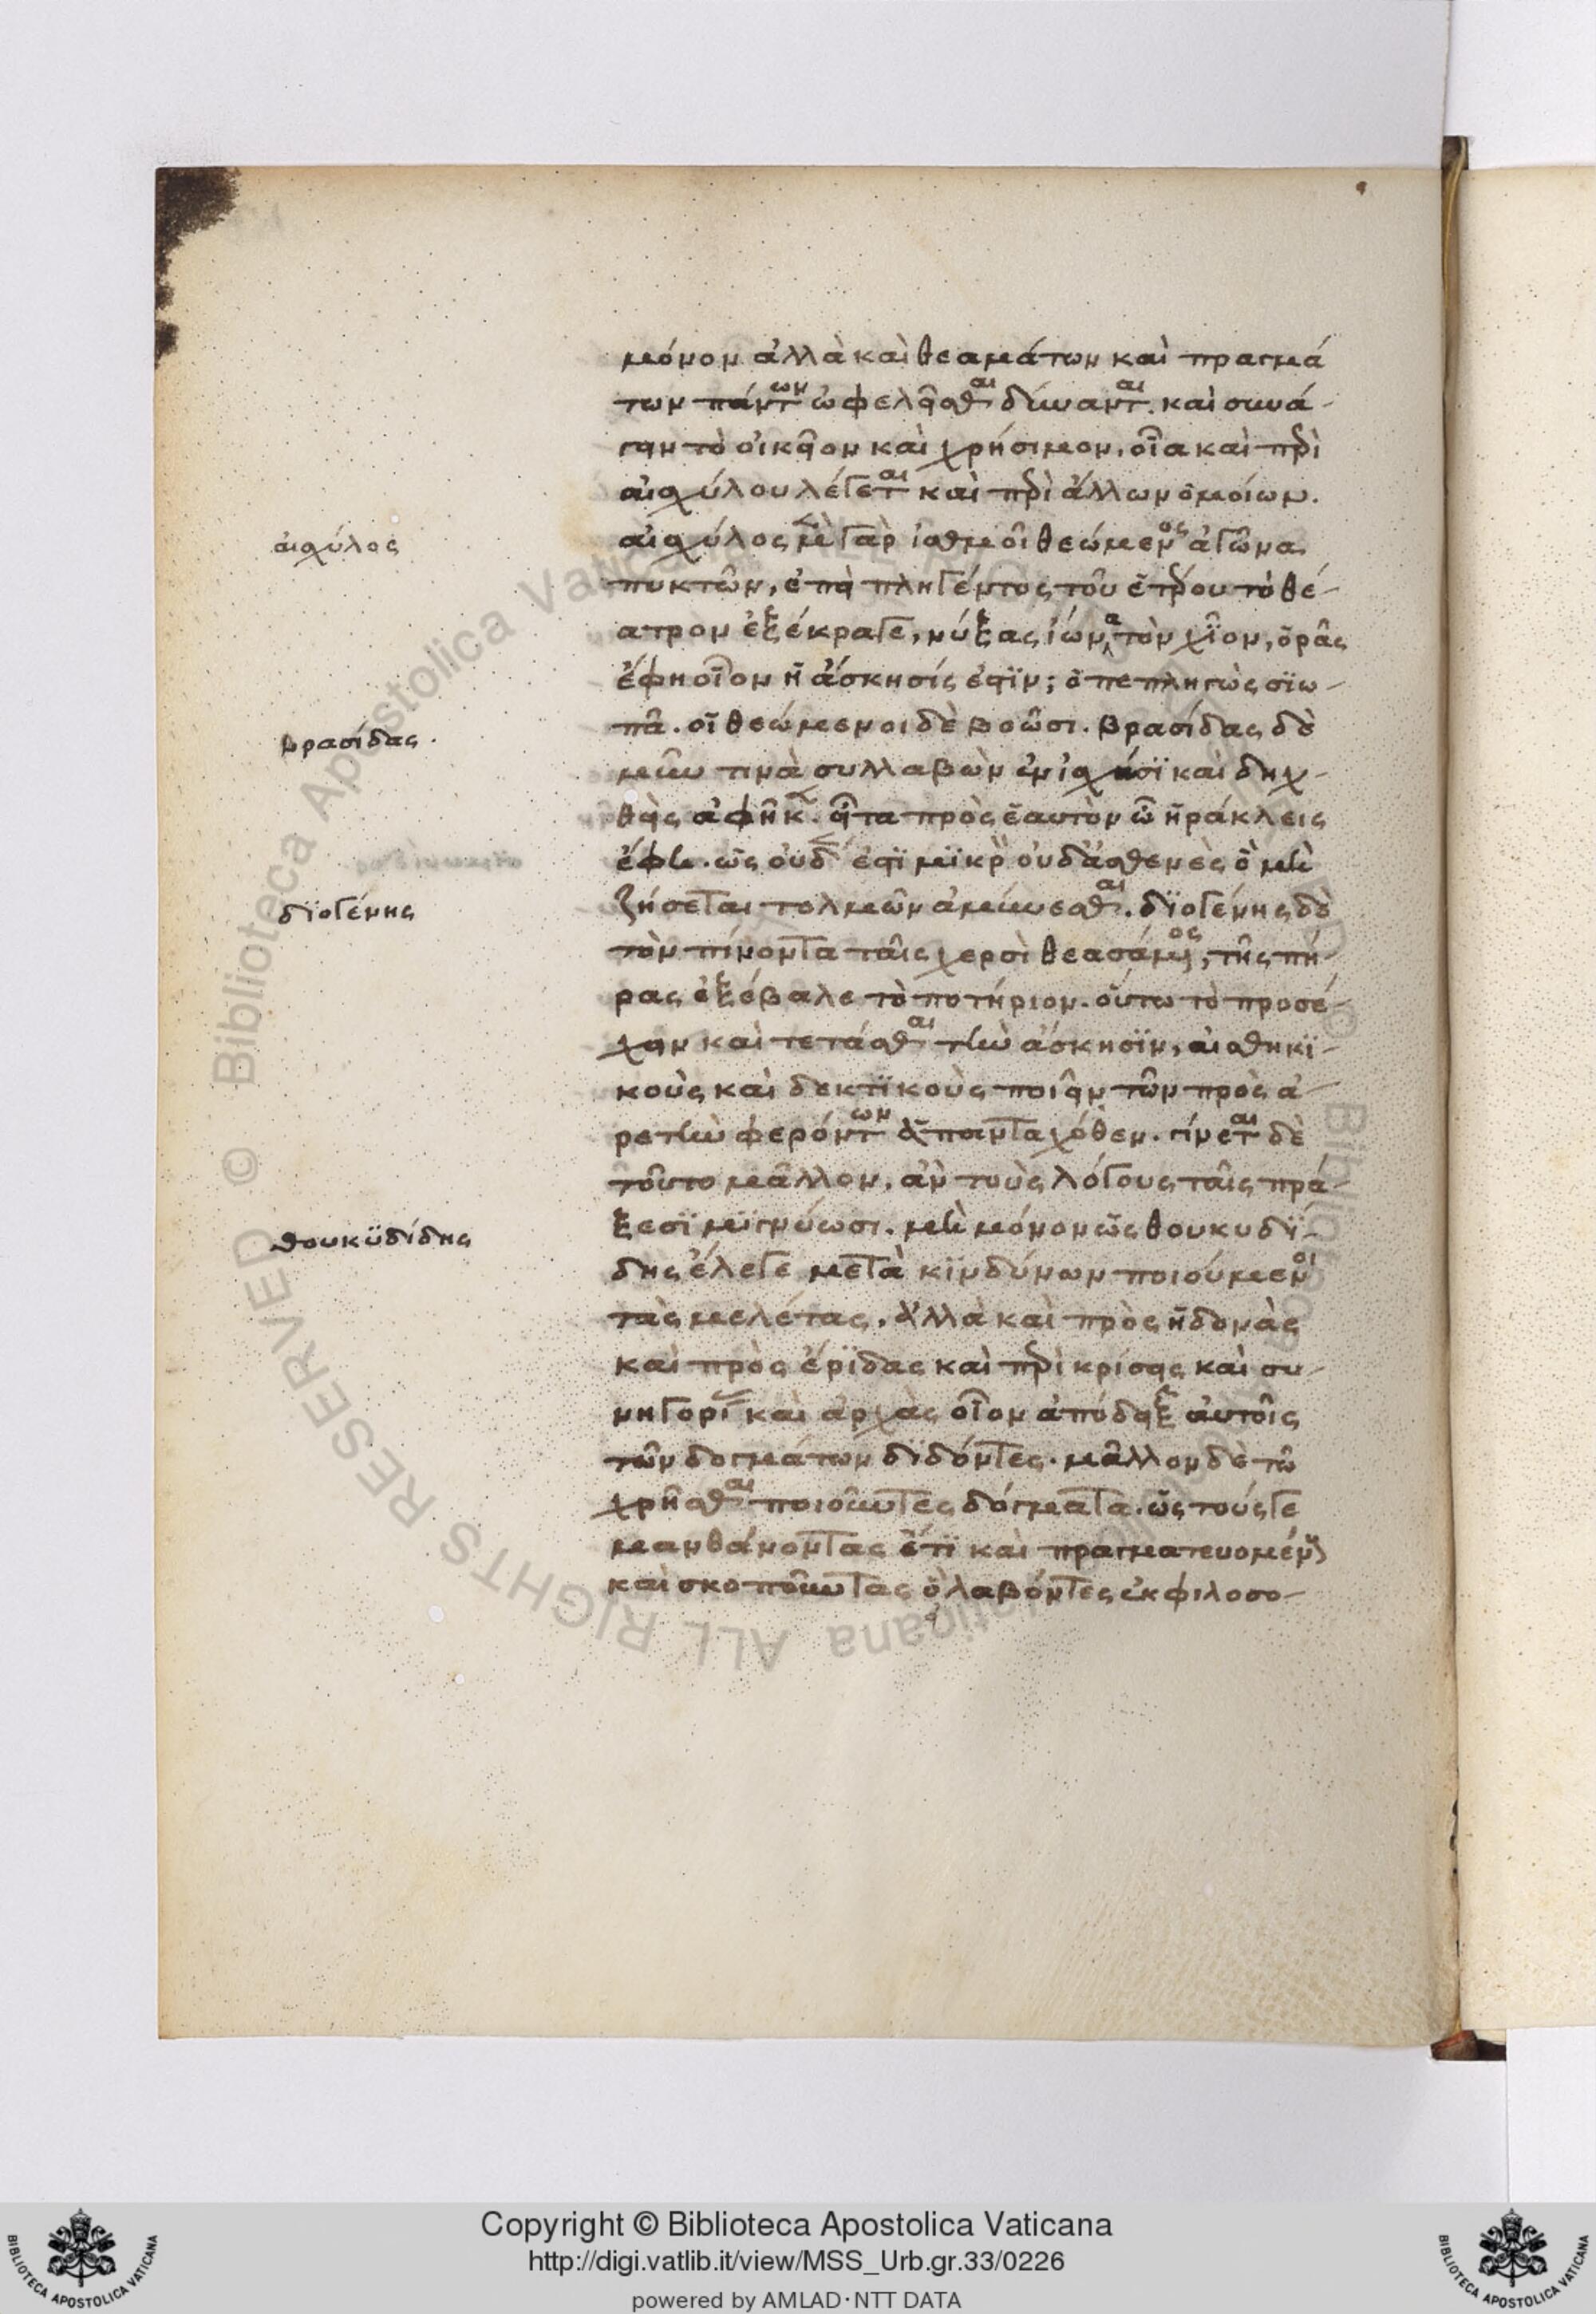 μόνον ἀλλὰ καὶ θεαμάτων καὶ πραγμά
των πάντων ὠφελεῖσθαι δύνανται. καὶ συνά-
γειν τὸ οἰκεῖον καὶ χρήσιμον, οἷα καὶ περὶ
αἰσχύλου λέγεται καὶ περὶ ἄλλων ὁμοίων.
αἰσχύλος
αἰσχύλος μὲν γὰρ ἰσθμοῖ θεώμενος ἀγῶνα
πυκτῶν, ἐπεὶ πληγέντος τοῦ ἑτέρου τὸ θέ-
ατρον ἐξέκραγε, νύξας ἴωνα τὸν χῖον, ὁρᾶς
ἔφη οἷον ἡ ἄσκησίς ἐστϊν; ὁ πεπληγὼς σϊω-
βρασίδας.
πᾶ. οἱ θεώμενοι δὲ βοῶσι. βρασίδας δὲ
μῦν τινὰ συλλαβὼν ἐν ἰσχάσϊ καὶ δηχ-
θεὶς ἀφῆκεν. εἶτα πρὸς ἑαυτὸν ὦ ἡράκλεις
ἔφη. ὡς οὐδέν ἐστϊ μϊκρὸν οὐδ' ἀσθενὲς ὃ μὴ
διογένης
ζήσεται τολμῶν ἀμύνεσθαι. δϊογένης δὲ
τὸν πίνοντα ταῖς χερσὶ θεασάμενος, τῆς πή-
ρας ἐξέβαλε τὸ ποτήριον. οὕτω τὸ προσέ-
χειν καὶ τετάσθαι τὴν ἄσκησϊν, αἰσθητϊ-
κοὺς καὶ δεκτϊκοὺς ποιεῖν τῶν πρὸς ἀ-
ρετὴν φερόντων ἁπανταχόθεν. γίνεται δὲ
τοῦτο μᾶλλον, ἂν τοὺς λόγους ταῖς πρά-
θουκϋδίδης
ξεσϊ μϊγνύωσι. μὴ μόνον ὡς θουκυδϊ-
δης ἔλεγε μετὰ κϊνδύνων ποιούμενοι
τὰς μελέτας, ἀλλὰ καὶ πρὸς ἡδονὰς
καὶ πρὸς ἔρϊδας καὶ περὶ κρίσεις καὶ συ-
νηγορίας καὶ ἀρχὰς οἷον ἀπόδειξιν αὑτοῖς
τῶν δογμάτων δϊδόντες. μᾶλλον δὲ τῶ
χρῆσθαι ποιοῦντες δόγματα. ὡς τούς γε
μανθάνοντας ἔτϊ καὶ πραγματευομένους
καὶ σκοποῦντας ὃ λαβόντες ἐκ φιλοσο-
Copyright © Biblioteca Apostolica Vaticana
http://digi.vatlib.it/view/MSS_Urb.gr.33/0226
powered by AMLAD·NTT DATA